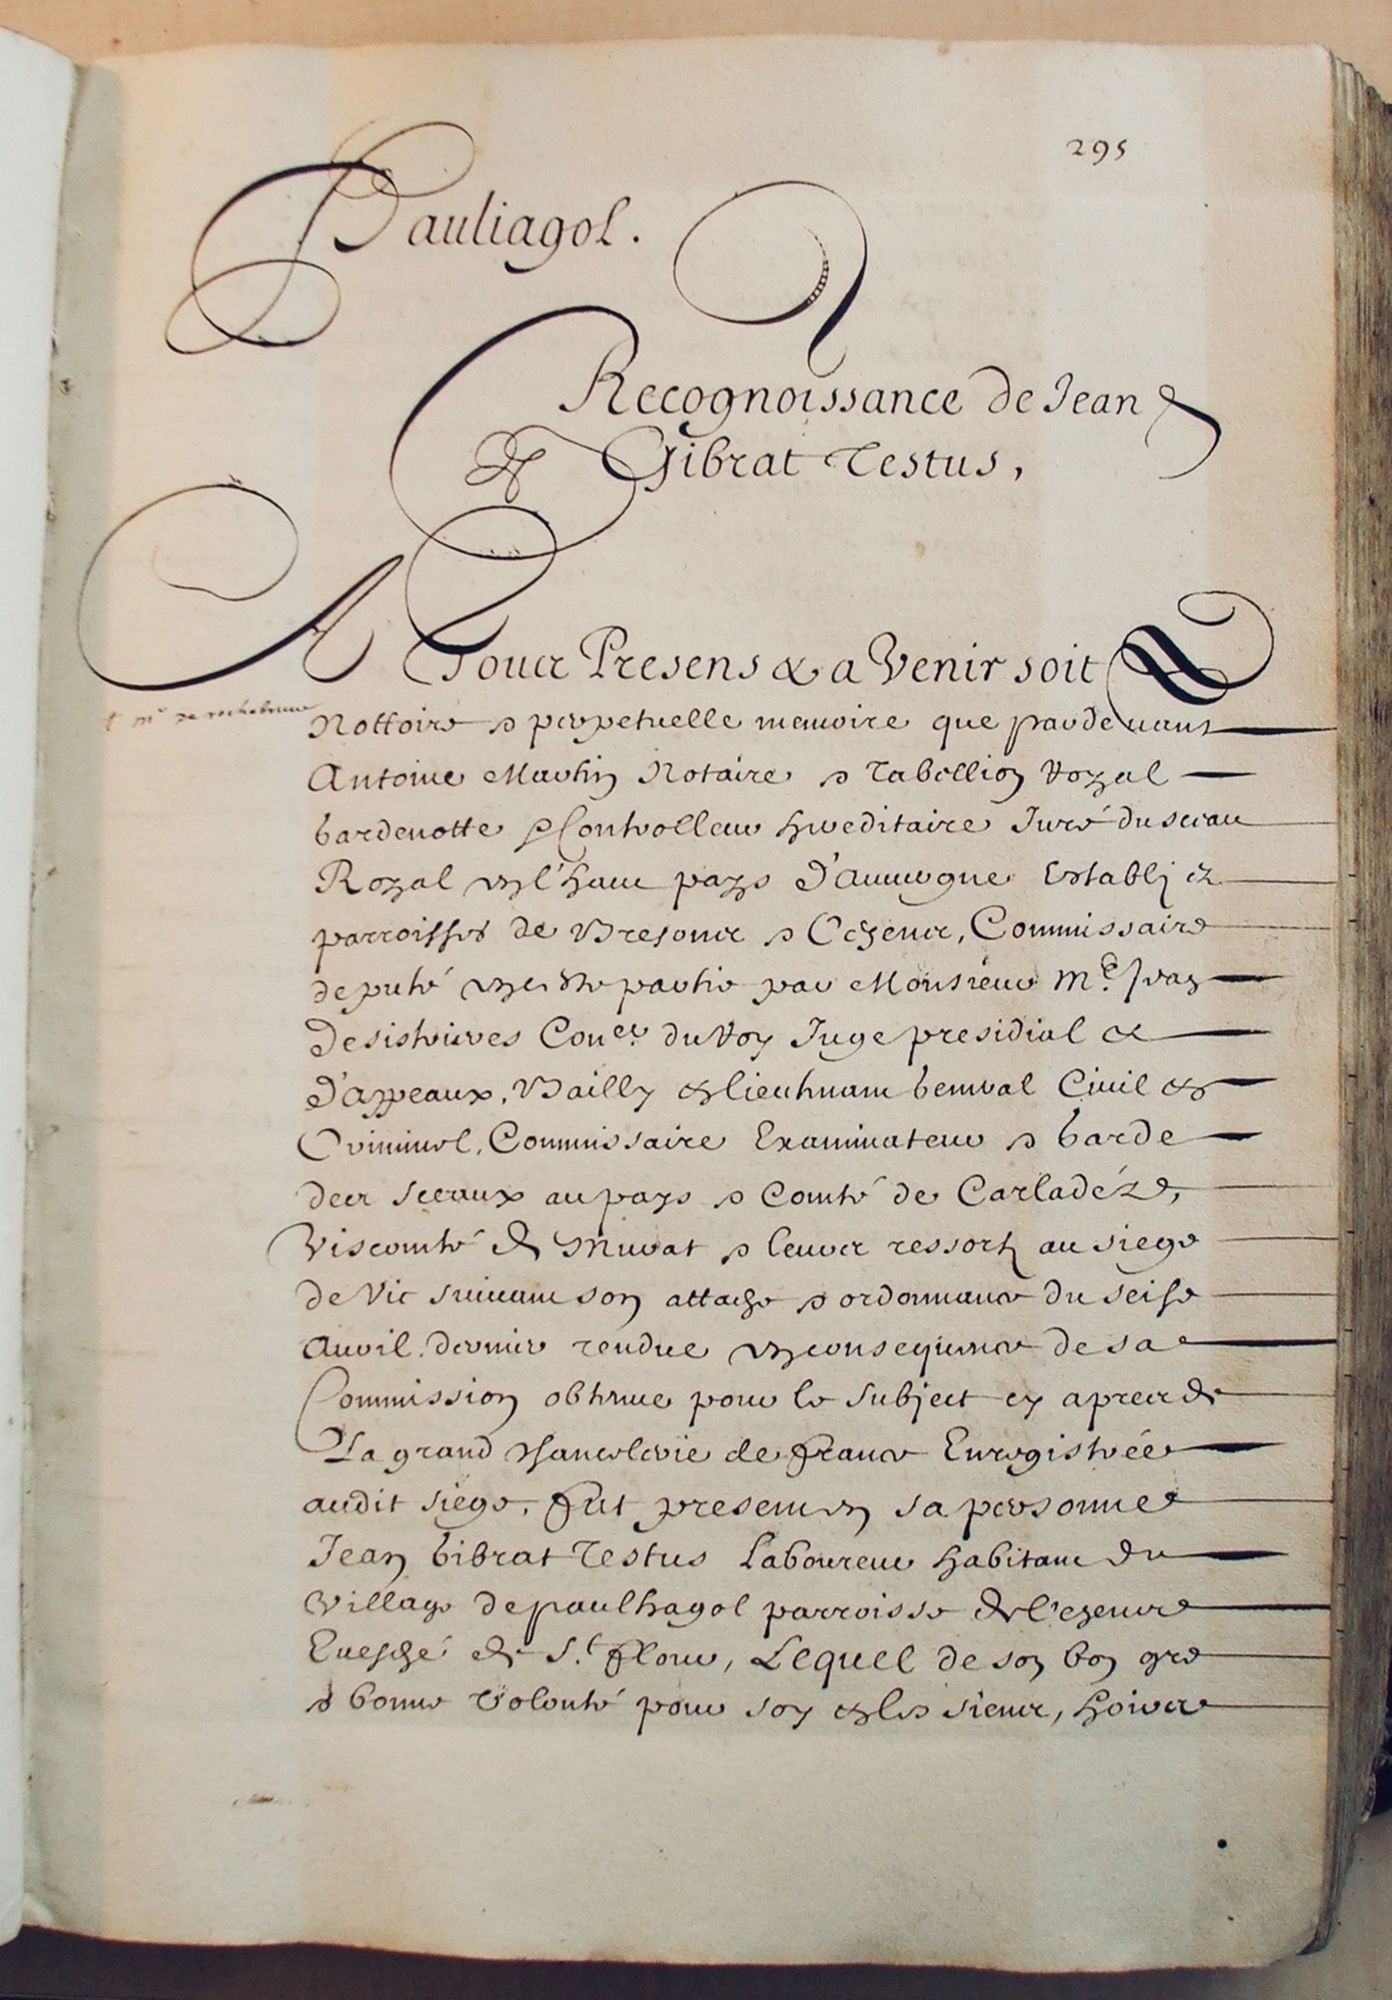 295
Pauliagol.
Recognoissance de Jean
Gibrat Testus,
A Tous Presens & a Venir soit
Nottoire & perpetuelle memoire que pardevant
t mr de rochebrune
Antoine Martin Notaire & Tabellion Royal
Gardenotte & Controlleur hereditaire Juré du sceau
Royal en l'haut pays d'auuergne Establj ez
parroisses de Bresons & Cezens, Commissaire
deputé en cette partie par Monsieur Me
Desistrieres Coner. du Roy Juge presidial &
d'appeaux, Bailly & lieutenant General Ciuil &
Criminel, Commissaire Examinateur & Garde
des sceaux au pays & Comté de Carladéz,
Viscomté de Murat & leurs ressort au siege
de Vic suiuant son attache & ordonnance du seise
Auril dernier rendue en consequence de sa
Commission obtenue pour le subject cy apres de
La grand Chancelerie de france Enregistrée
audit siege, fut present en sa personne
Jean Gibrat Testus Laboureur habitant du
Village de paulhagol parroisse de Cezens
Euesché de St flour, Lequel de son bon gre
& bonne volonté pour soy & les siens, hoirs